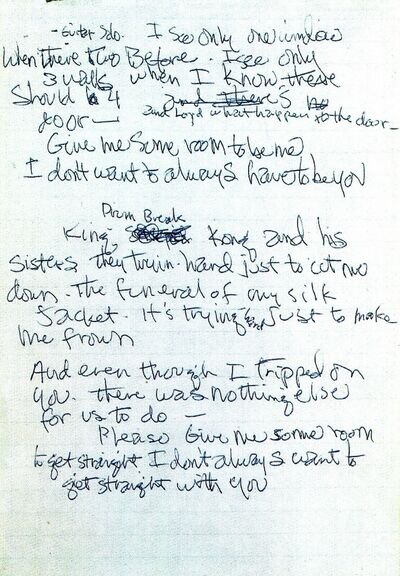 - Guitar Solo. I see only one window
When there two Before. I see only
3 walls when I know these
Should be 4 and there's no
door — and Lord what happen to the door -
Give me some room to be me
I don't want to always have to be you
Drum Break
King Kong and his
sisters they tryin hard just to cut me
down. The funeral of my silk
Jacket. It's trying just to make
me frown
And even though I tripped on
you. there was nothing else
for us to do —
Please Give me some room
to get straight I don't always want to
get straight with you